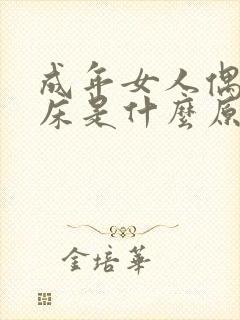 成年女人偶
床是什麼原
金培華